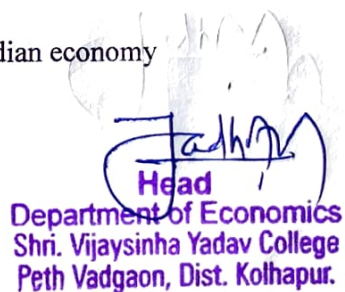 dian economy
Head
Department of Economics
Shri. Vijaysinha Yadav College
Peth Vadgaon, Dist. Kolhapur.